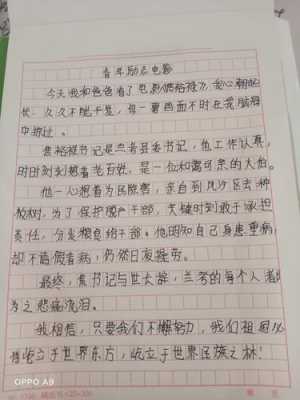 青年励志电影
今天我和爸爸看了电影《焦裕禄》,我心潮起
伏,久久不能平复,每一量画面不时在我脑海
中掠过。
焦裕禄书记是兰考县委书记,他工作认真,
时时刻刻想着老百姓,是一位和蔼可亲的大伯。
他一心想着为民除害,亲自到风沙区去种
树,为了保护干部,关键时刻敢于承担
责任,分发粮食给干部。他明知自己身患重病,
却不请假看病,仍然日夜操劳。
最终,焦书记与世长辞,兰考的每个人都
为之悲痛流泪。
我相信,只要我们不懈努力,我们祖国必
将屹立于世界东方,屹立于世界民族之林!
OPPO A9